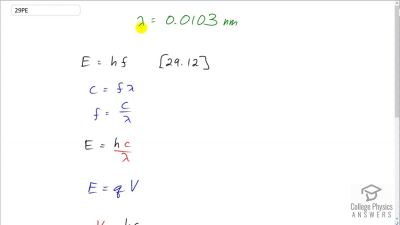 29PE
λ = 0.0103 nm
E = hf [29.12]
c = fλ
f = c/λ
E = hc/λ
E = qV
College Physics
ANSWERS